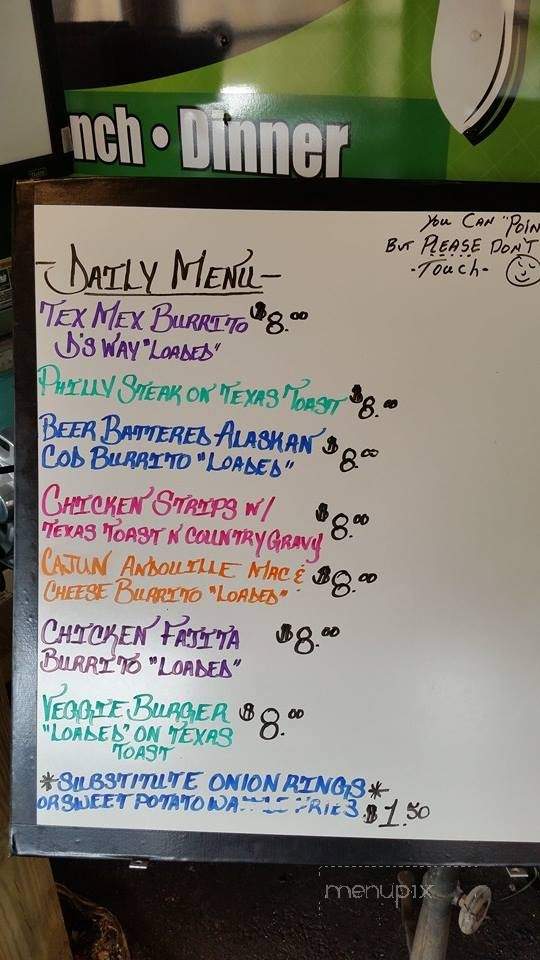 nch • Dinner
You Can "Poin
But Please Don't
-Touch-
- Daily Menu -
Tex Mex Burrito $8.00
D's Way "Loaded"
Philly Steak on Texas Toast $8.00
Beer Battered Alaskan
Cod Burrito "Loaded" $8.00
Chicken Strips w/ $8.00
Texas Toast n Country Gravy
Cajun Andouille Mac & $8.00
Cheese Burrito "Loaded"
Chicken Fajita $8.00
Burrito "Loaded"
Veggie Burger $8.00
"Loaded" on Texas
Toast
*Substitute Onion Rings*
or Sweet Potato Fries $1.50
menupix